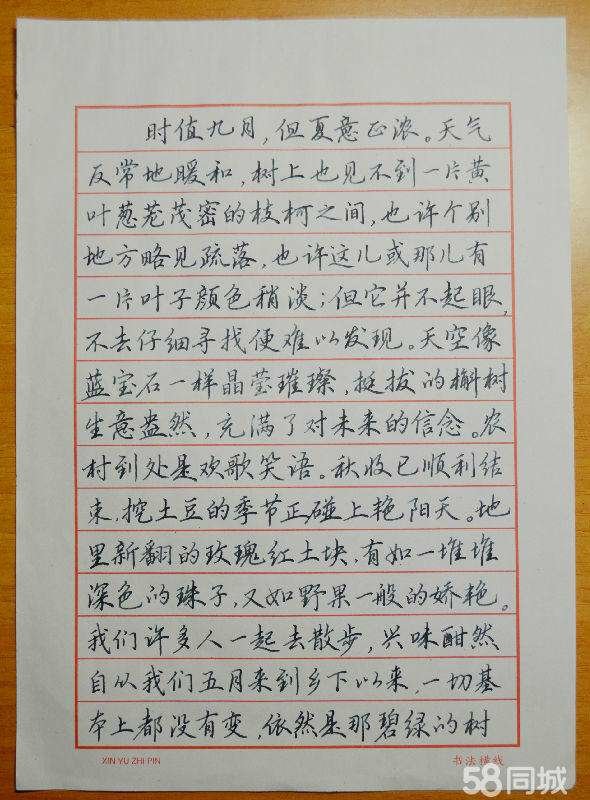 时值九月，但夏意正浓。天气
反常地暖和，树上也见不到一片黄
叶葱茏茂密的枝柯之间，也许个别
地方略见疏落，也许这儿或那儿有
一片叶子颜色稍淡；但它并不起眼，
不去仔细寻找便难以发现。天空像
蓝宝石一样晶莹璀璨，挺拔的槲树
生意盎然，充满了对未来的信念。农
村到处是欢歌笑语。秋收已顺利结
束，挖土豆的季节正碰上艳阳天。地
里新翻的玫瑰红土块，有如一堆堆
深色的珠子，又如野果一般的娇艳。
我们许多人一起去散步，兴味酣然
自从我们五月来到乡下以来，一切基
本上都没有变，依然是那碧绿的树
XIN YU ZHI PIN 书法横线
58同城